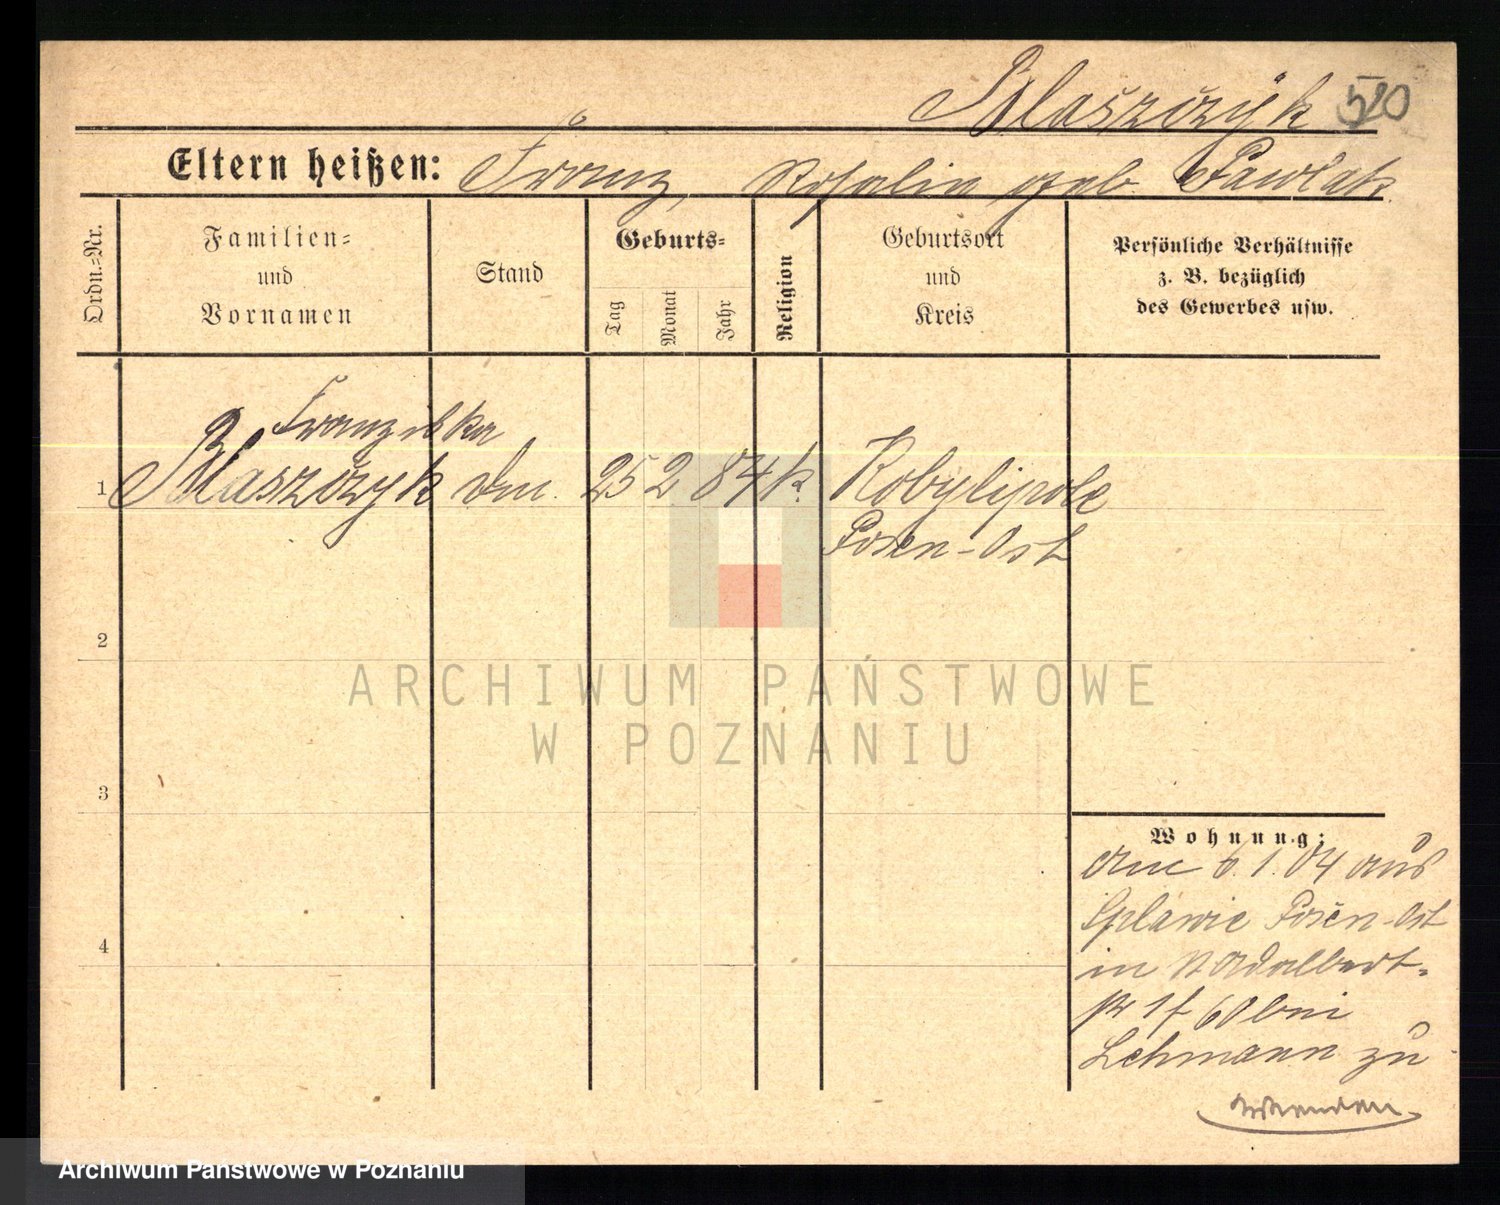 Blaszczyk 520
Eltern heißen: Franz, Rosalie geb. Pawlak
Ordn.=Nr.
Familien=
und
Vornamen
Stand
Geburts=
Tag
Monat
Jahr
Religion
Geburtsort
und
Kreis
Persönliche Verhältnisse
z. B. bezüglich
des Gewerbes usw.
Franziska
1 Blaszczyk 25 2 84 k. Kobylipole
Posen-Ost
2
3
4
Wohnung:
Am 6.1.04 aus
Splawie Posen-Ost
in Adalbert-
60 bei
Lehmann zu
ARCHIWUM PAŃSTWOWE
W POZNANIU
Archiwum Państwowe w Poznaniu